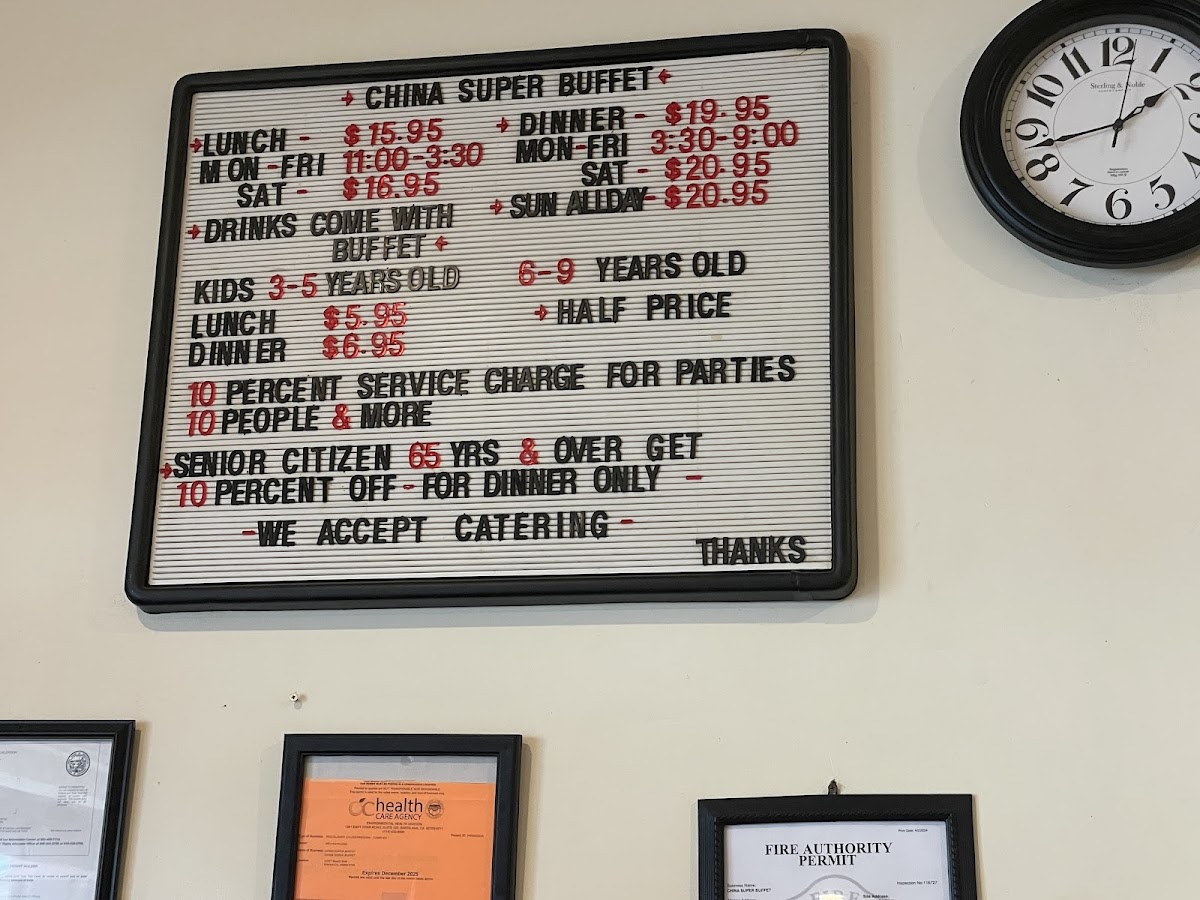 CHINA SUPER BUFFET
LUNCH - $15.95
MON-FRI 11:00-3:30
SAT - $16.95
DRINKS COME WITH
BUFFET
DINNER - $19.95
MON-FRI 3:30-9:00
SAT - $20.95
SUN ALLDAY- $20.95
KIDS 3-5 YEARS OLD
LUNCH $5.95
DINNER $6.95
6-9 YEARS OLD
HALF PRICE
10 PERCENT SERVICE CHARGE FOR PARTIES
10 PEOPLE & MORE
SENIOR CITIZEN 65 YRS & OVER GET
10 PERCENT OFF - FOR DINNER ONLY -
-WE ACCEPT CATERING-
THANKS
12
1
2
5
6
7
8
9
10
11
Sterling & Noble
health
CARE AGENCY
ENVIRONMENTAL HEALTH DIVISION
Expires December 2025
FIRE AUTHORITY
PERMIT
Business Name:
CHINA SUPER BUFFET
Site Address: